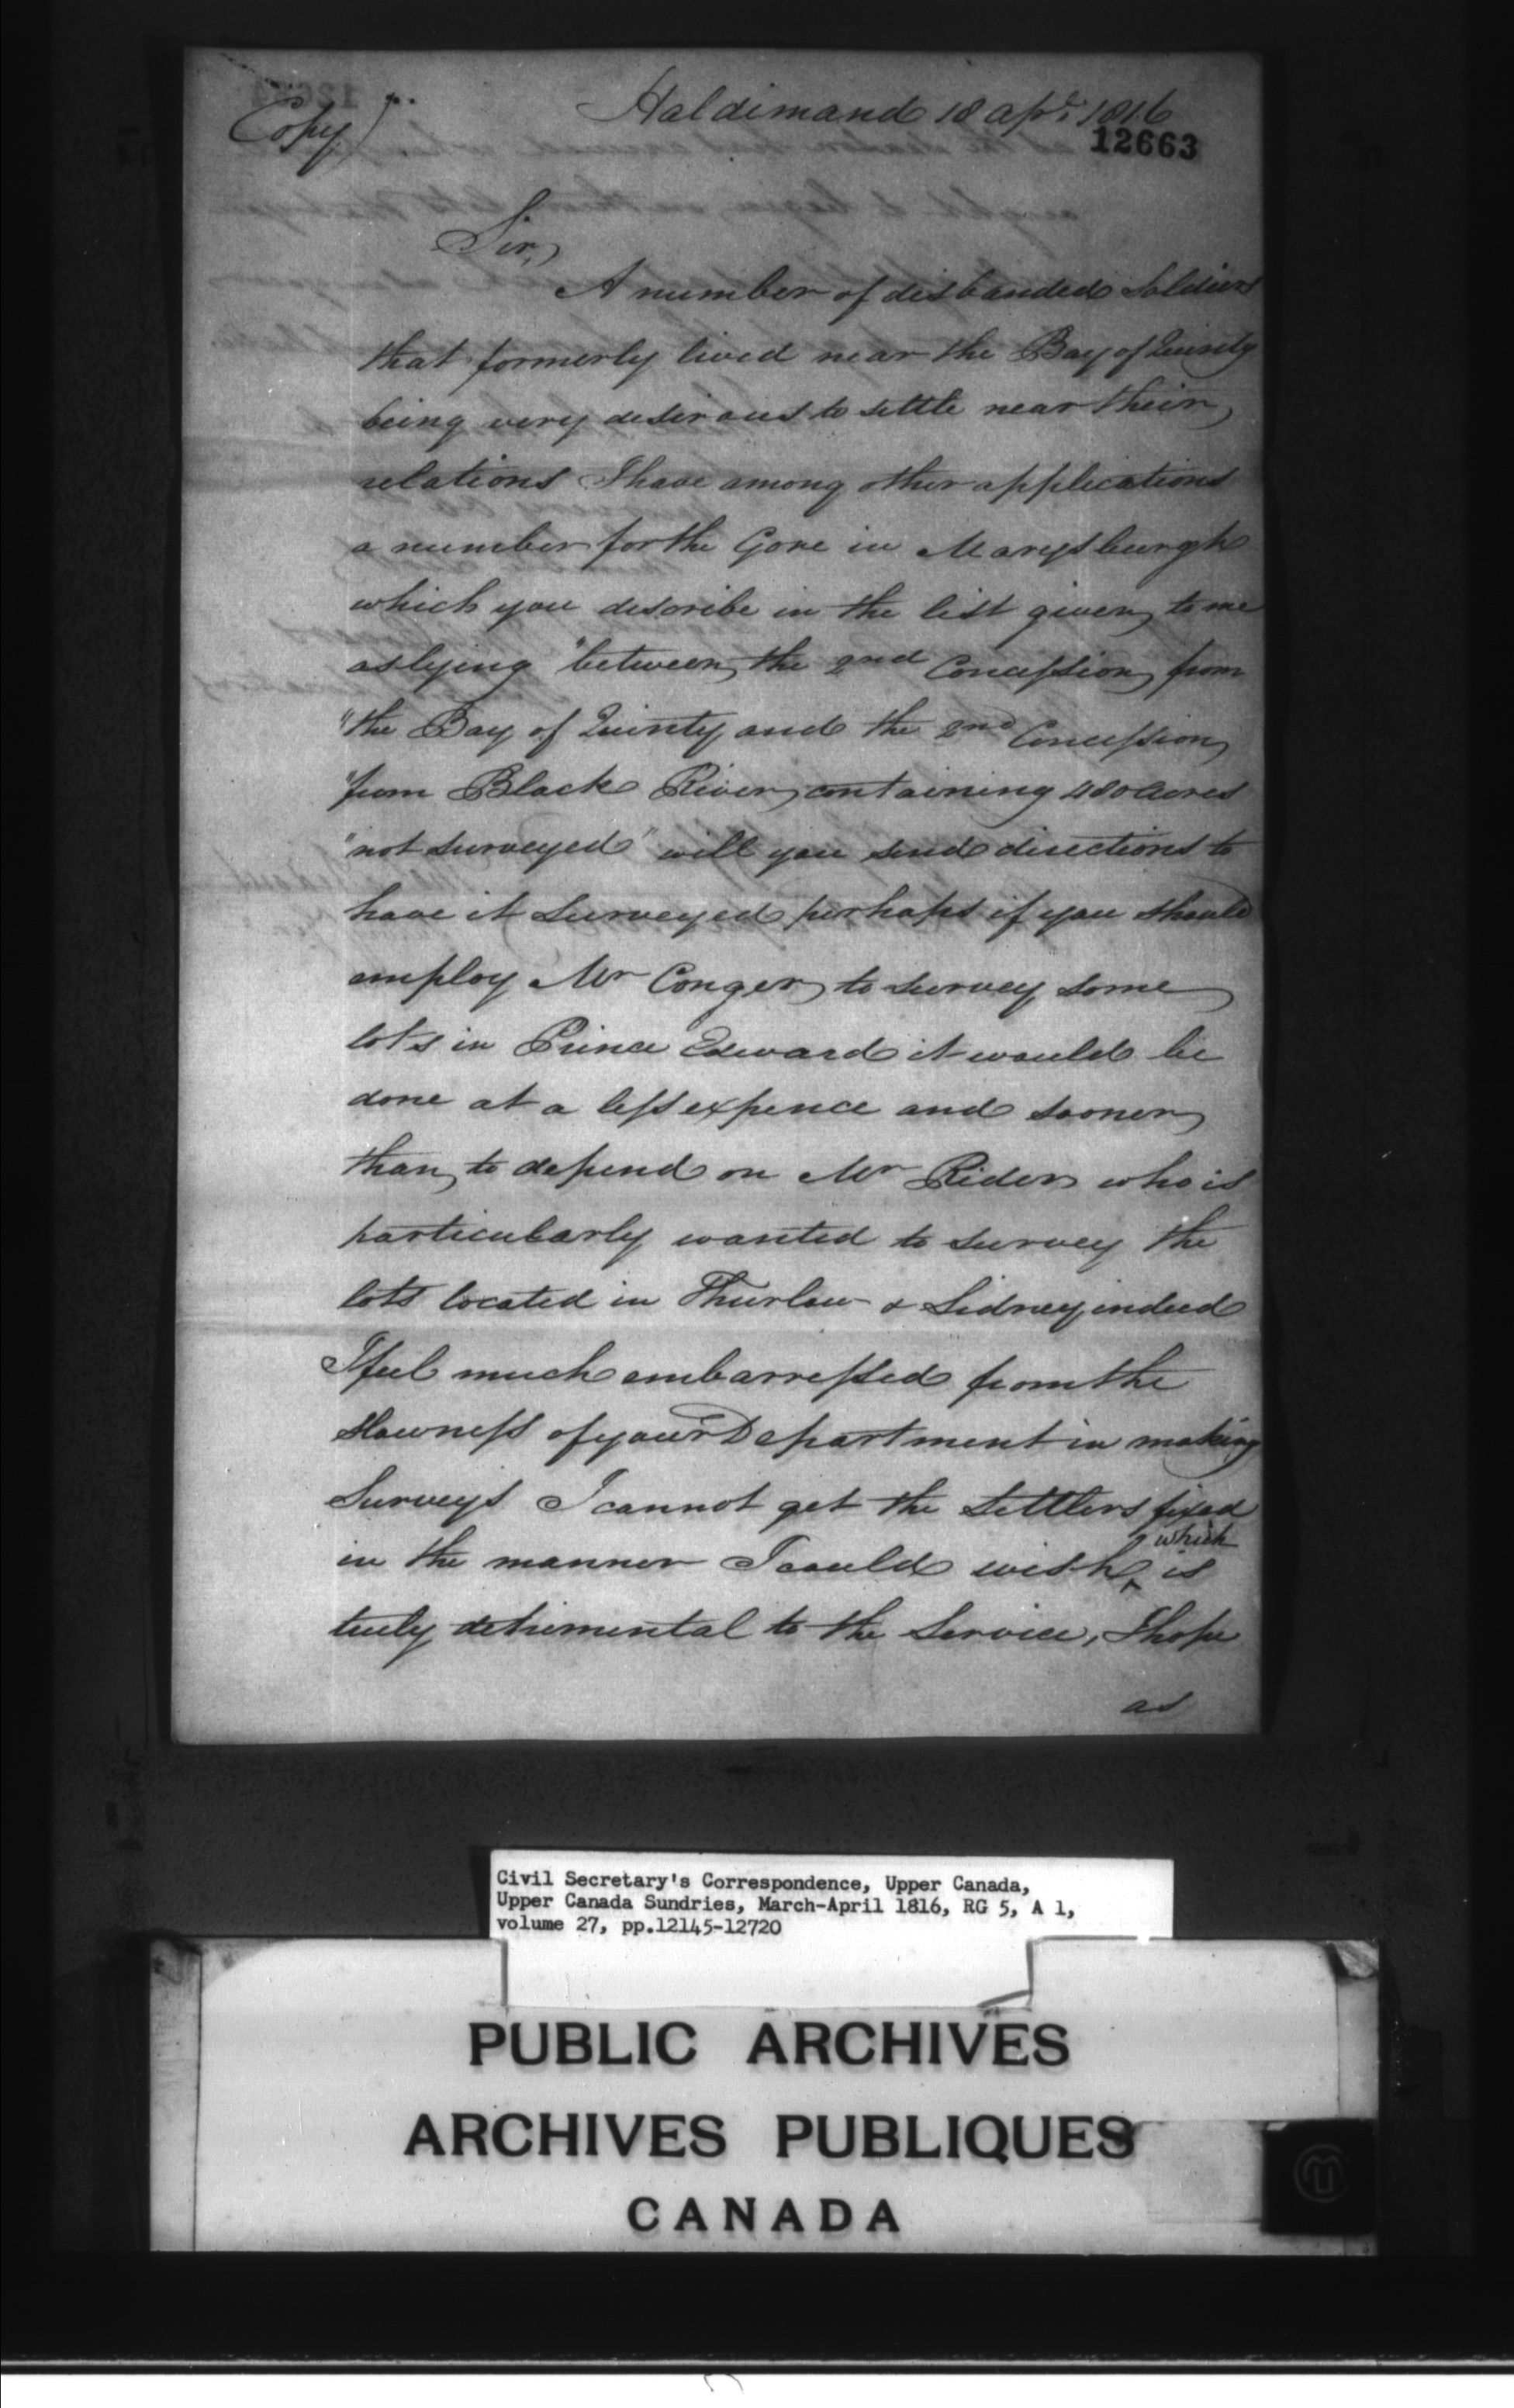 Copy)
Haldimand 18 apr. 1816
12663
Sir,
A number of disbanded Soldiers
that formerly lived near the Bay of Quinty
being very desirous to settle near their
relations I have among other applications
a number for the Gore in Marysburgh
which you describe in the list given to me
as lying "between the 2nd Concession from
"the Bay of Quinty and the 2nd Concession
"from Black River, containing 480 Acres
"not surveyed" will you send directions to
have it Surveyed perhaps if you should
employ Mr Conger to survey some
lots in Prince Edward it would be
done at a less expence and sooner
than to depend on Mr Rider who is
particularly wanted to survey the
lots located in Thurlow & Sidney, indeed
I feel much embarressed from the
slowness of your Department in making
Surveys I cannot get the Settlers fixed
in the manner I could wish, which is
truly detrimental to the Service, I hope
as
Civil Secretary's Correspondence, Upper Canada,
Upper Canada Sundries, March-April 1816, RG 5, A 1,
volume 27, pp.12145-12720
PUBLIC ARCHIVES
ARCHIVES PUBLIQUES
CANADA